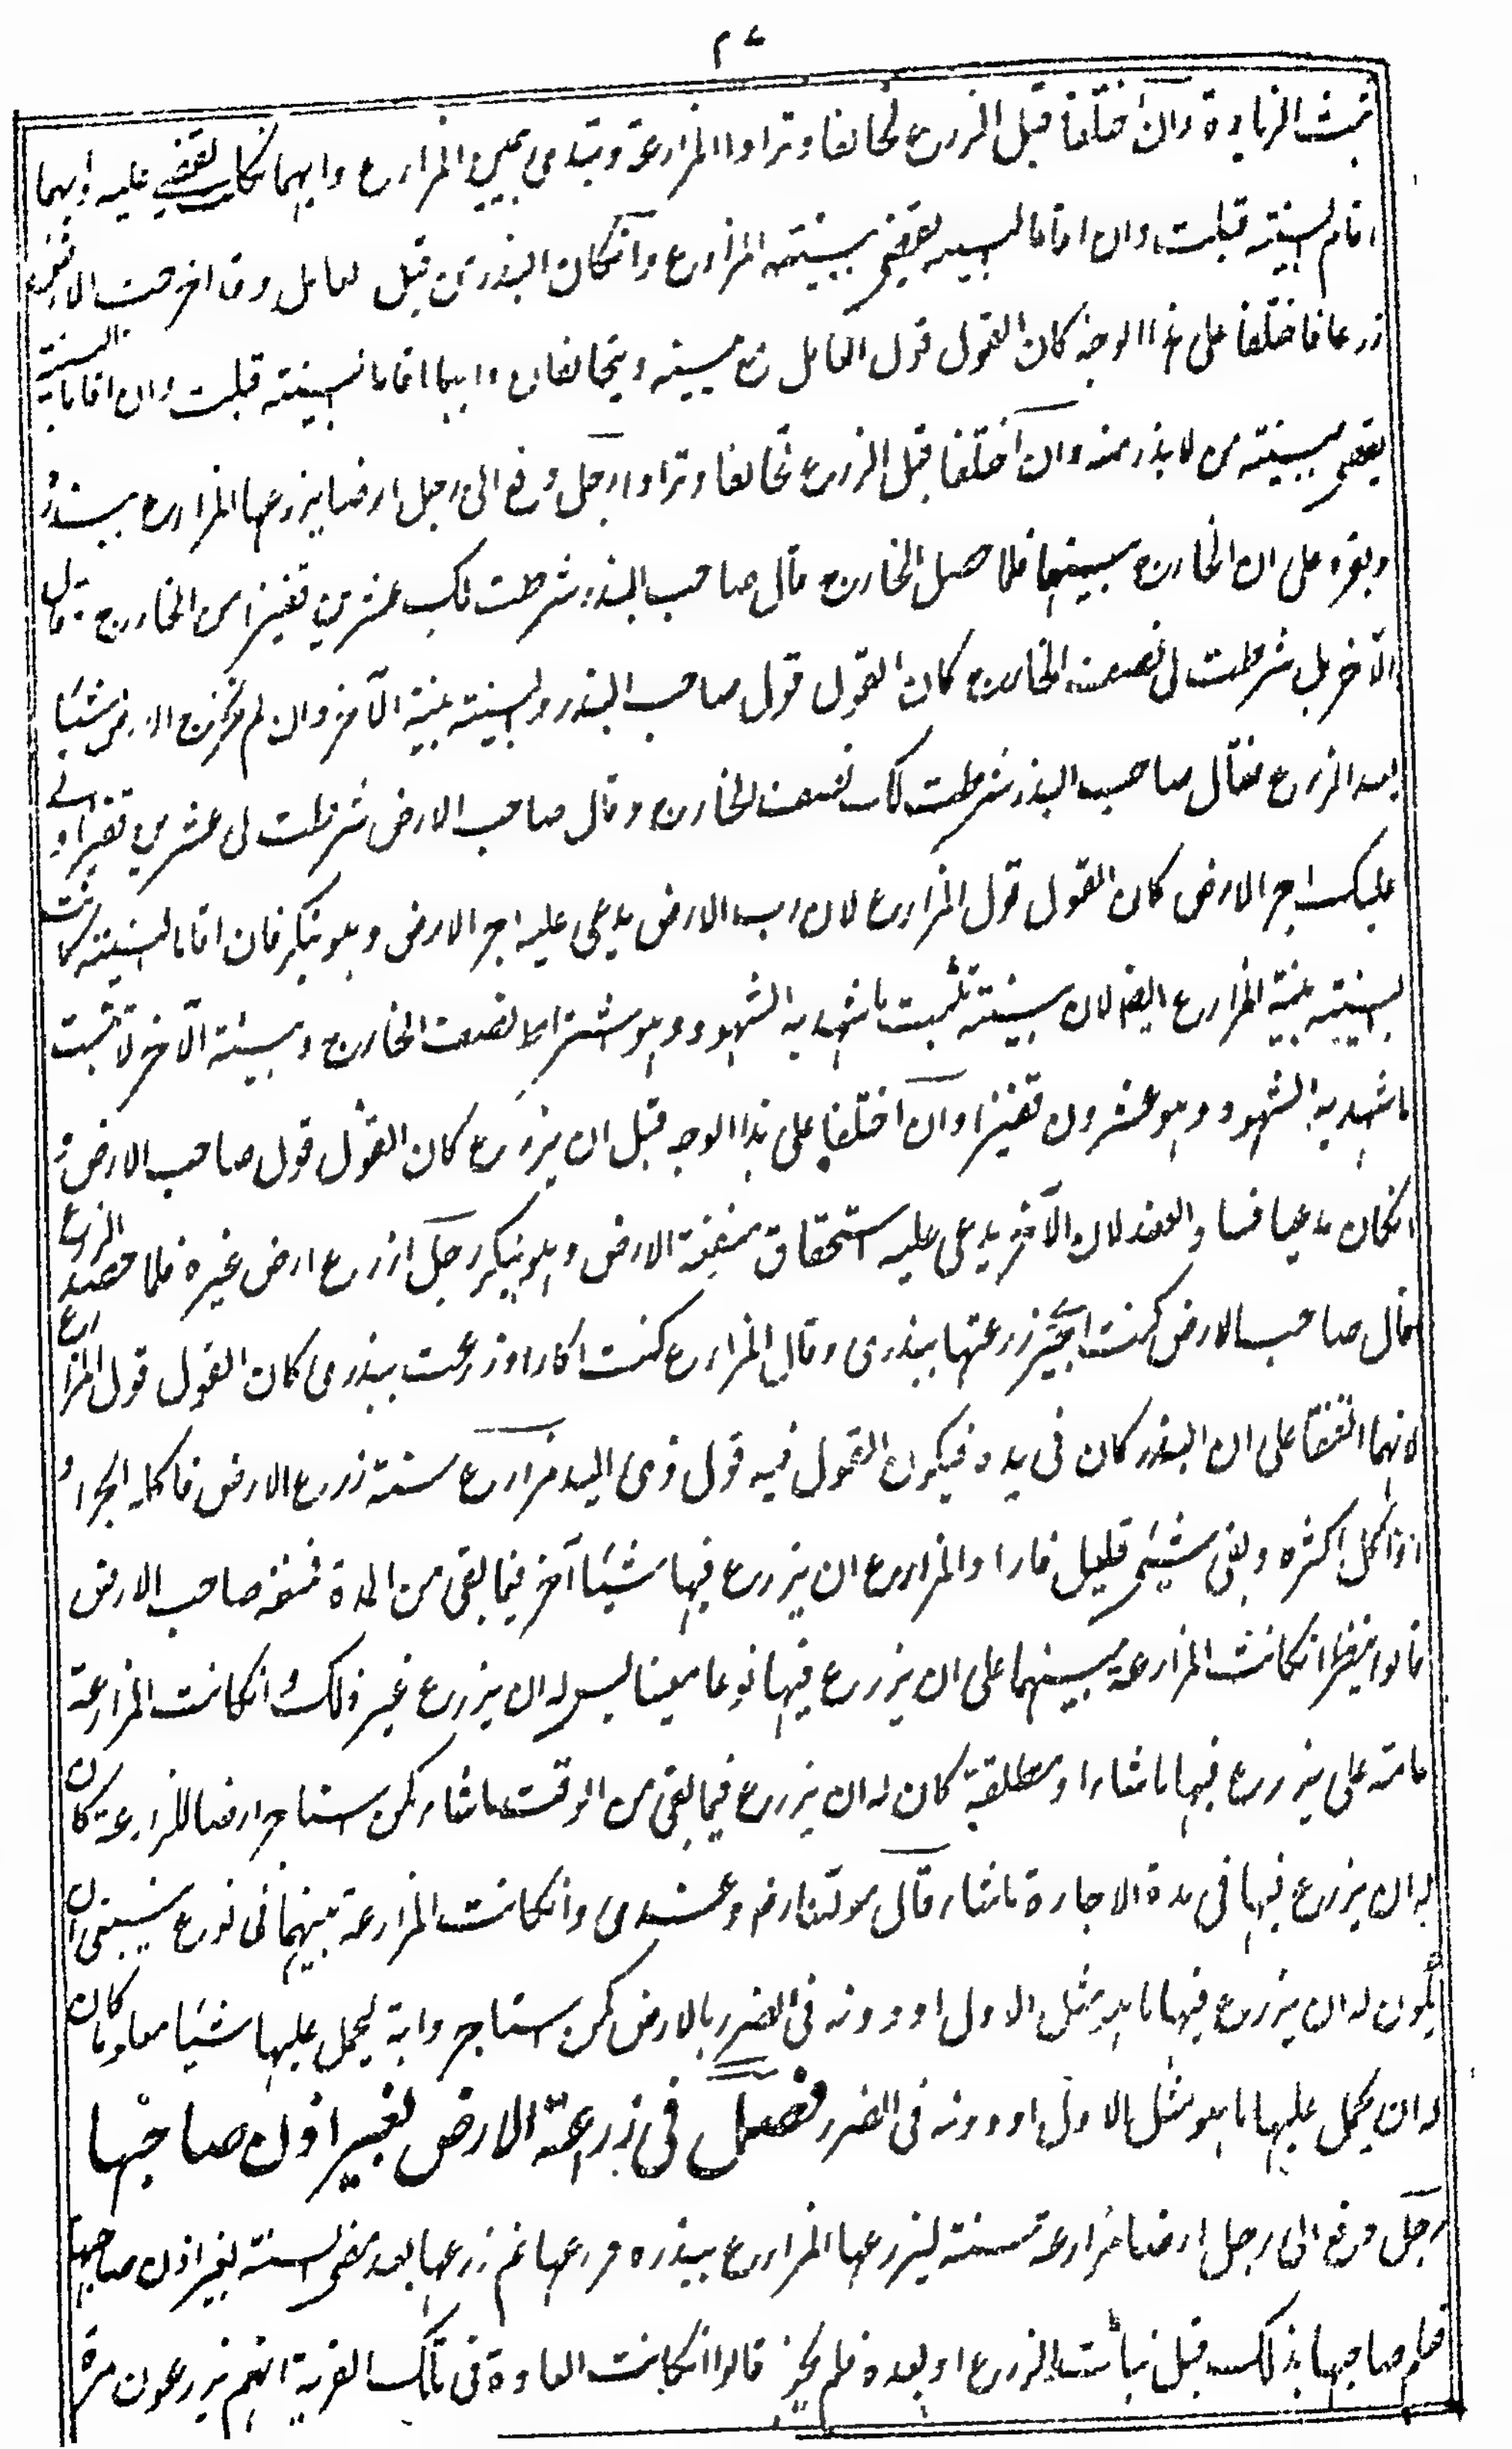 ٤٧
تثبت الزيادة وان اختلفا قبل الزرع تحالفا وترادا المزارعة ويبتدى بيمين المزارع وايهما نكل يقضى عليه وايهما
اقام البينة قبلت وان اقاما البينة يقضى ببينة المزارع وانكان البذر من قبل العامل وقد اخرجت الارض
زرعا فاختلفا على هذا الوجه كان القول قول العامل مع يمينه ويتحالفان وايهما اقام البينة قبلت وان اقاما البينة
يقضى ببينة من لا بذر منه وان اختلفا قبل الزرع تحالفا وترادا رجل دفع الى رجل ارضا يزرعها المزارع ببذره
وبقره على ان الخارج بينهما فلما حصل الخارج قال صاحب البذر شرطت لك عشرين قفيزا من الخارج وقال
الآخر بل شرطت لى نصف الخارج كان القول قول صاحب البذر والبينة بينة الآخر وان لم تخرج الارض شيئا
بعد الزرع فقال صاحب البذر شرطت لك نصف الخارج وقال صاحب الارض شرطت لى عشرين قفيزا ولى
عليك اجر الارض كان القول قول المزارع لان رب الارض يدعى عليه اجر الارض وهو ينكر فان اقاما البينة كانت
البينة بينة المزارع ايضا لان بينته تثبت ما شهد به الشهود وهو اشتراط نصف الخارج وبينة الآخر لا تثبت
ما شهد به الشهود وهو عشرون قفيزا وان اختلفا على هذا الوجه قبل ان يزرع كان القول قول صاحب الارض
انكان مدعيا فساد العقد لان الآخر يدعى عليه استحقاق منفعة الارض وهو ينكر رجل زرع ارض غيره فلما حصد الزرع
قال صاحب الارض كنت اجيرى زرعتها ببذرى وقال المزارع كنت اكارا وزرعت ببذرى كان القول قول المزارع
لانهما اتفقا على ان البذر كان فى يده فيكون القول فيه قول ذى اليد مزارع سنة زرع الارض فاكله الجراد
او اكل اكثره وبقى شيئ قليل فاراد المزارع ان يزرع فيها شيئا آخر فيما بقى من المدة فمنعه صاحب الارض
قالوا ينظر انكانت المزارعة بينهما على ان يزرع فيها نوعا معينا ليس له ان يزرع غير ذلك وانكانت المزارعة
عامة على يزرع فيها ما شاء او مطلقة كان له ان يزرع فيما بقى من الوقت ما شاء كمن استاجر ارضا للزراعة كان
له ان يزرع فيها فى مدة الاجارة ما شاء قال مولانا رض وعندى وانكانت المزارعة بينهما فى نوع ينبغى ان
يكون له ان يزرع فيها ما هو مثل الاول او دونه فى الضرر بالارض كمن استاجر دابة ليحمل عليها شيئا معلوما كان
له ان يحمل عليها ما هو مثل الاول او دونه فى الضرر فصل فى زراعة الارض لغير اذن صاحبها
رجل دفع الى رجل ارضا مزارعة سنة ليزرعها المزارع ببذره فزرعها ثم زرعها بعد مضى السنة بغير اذن صاحبها
فعلم صاحبها بذلك قبل نبات الزرع او بعده فلم يجز قالوا انكانت العادة فى تلك القرية انهم يزرعون مرة